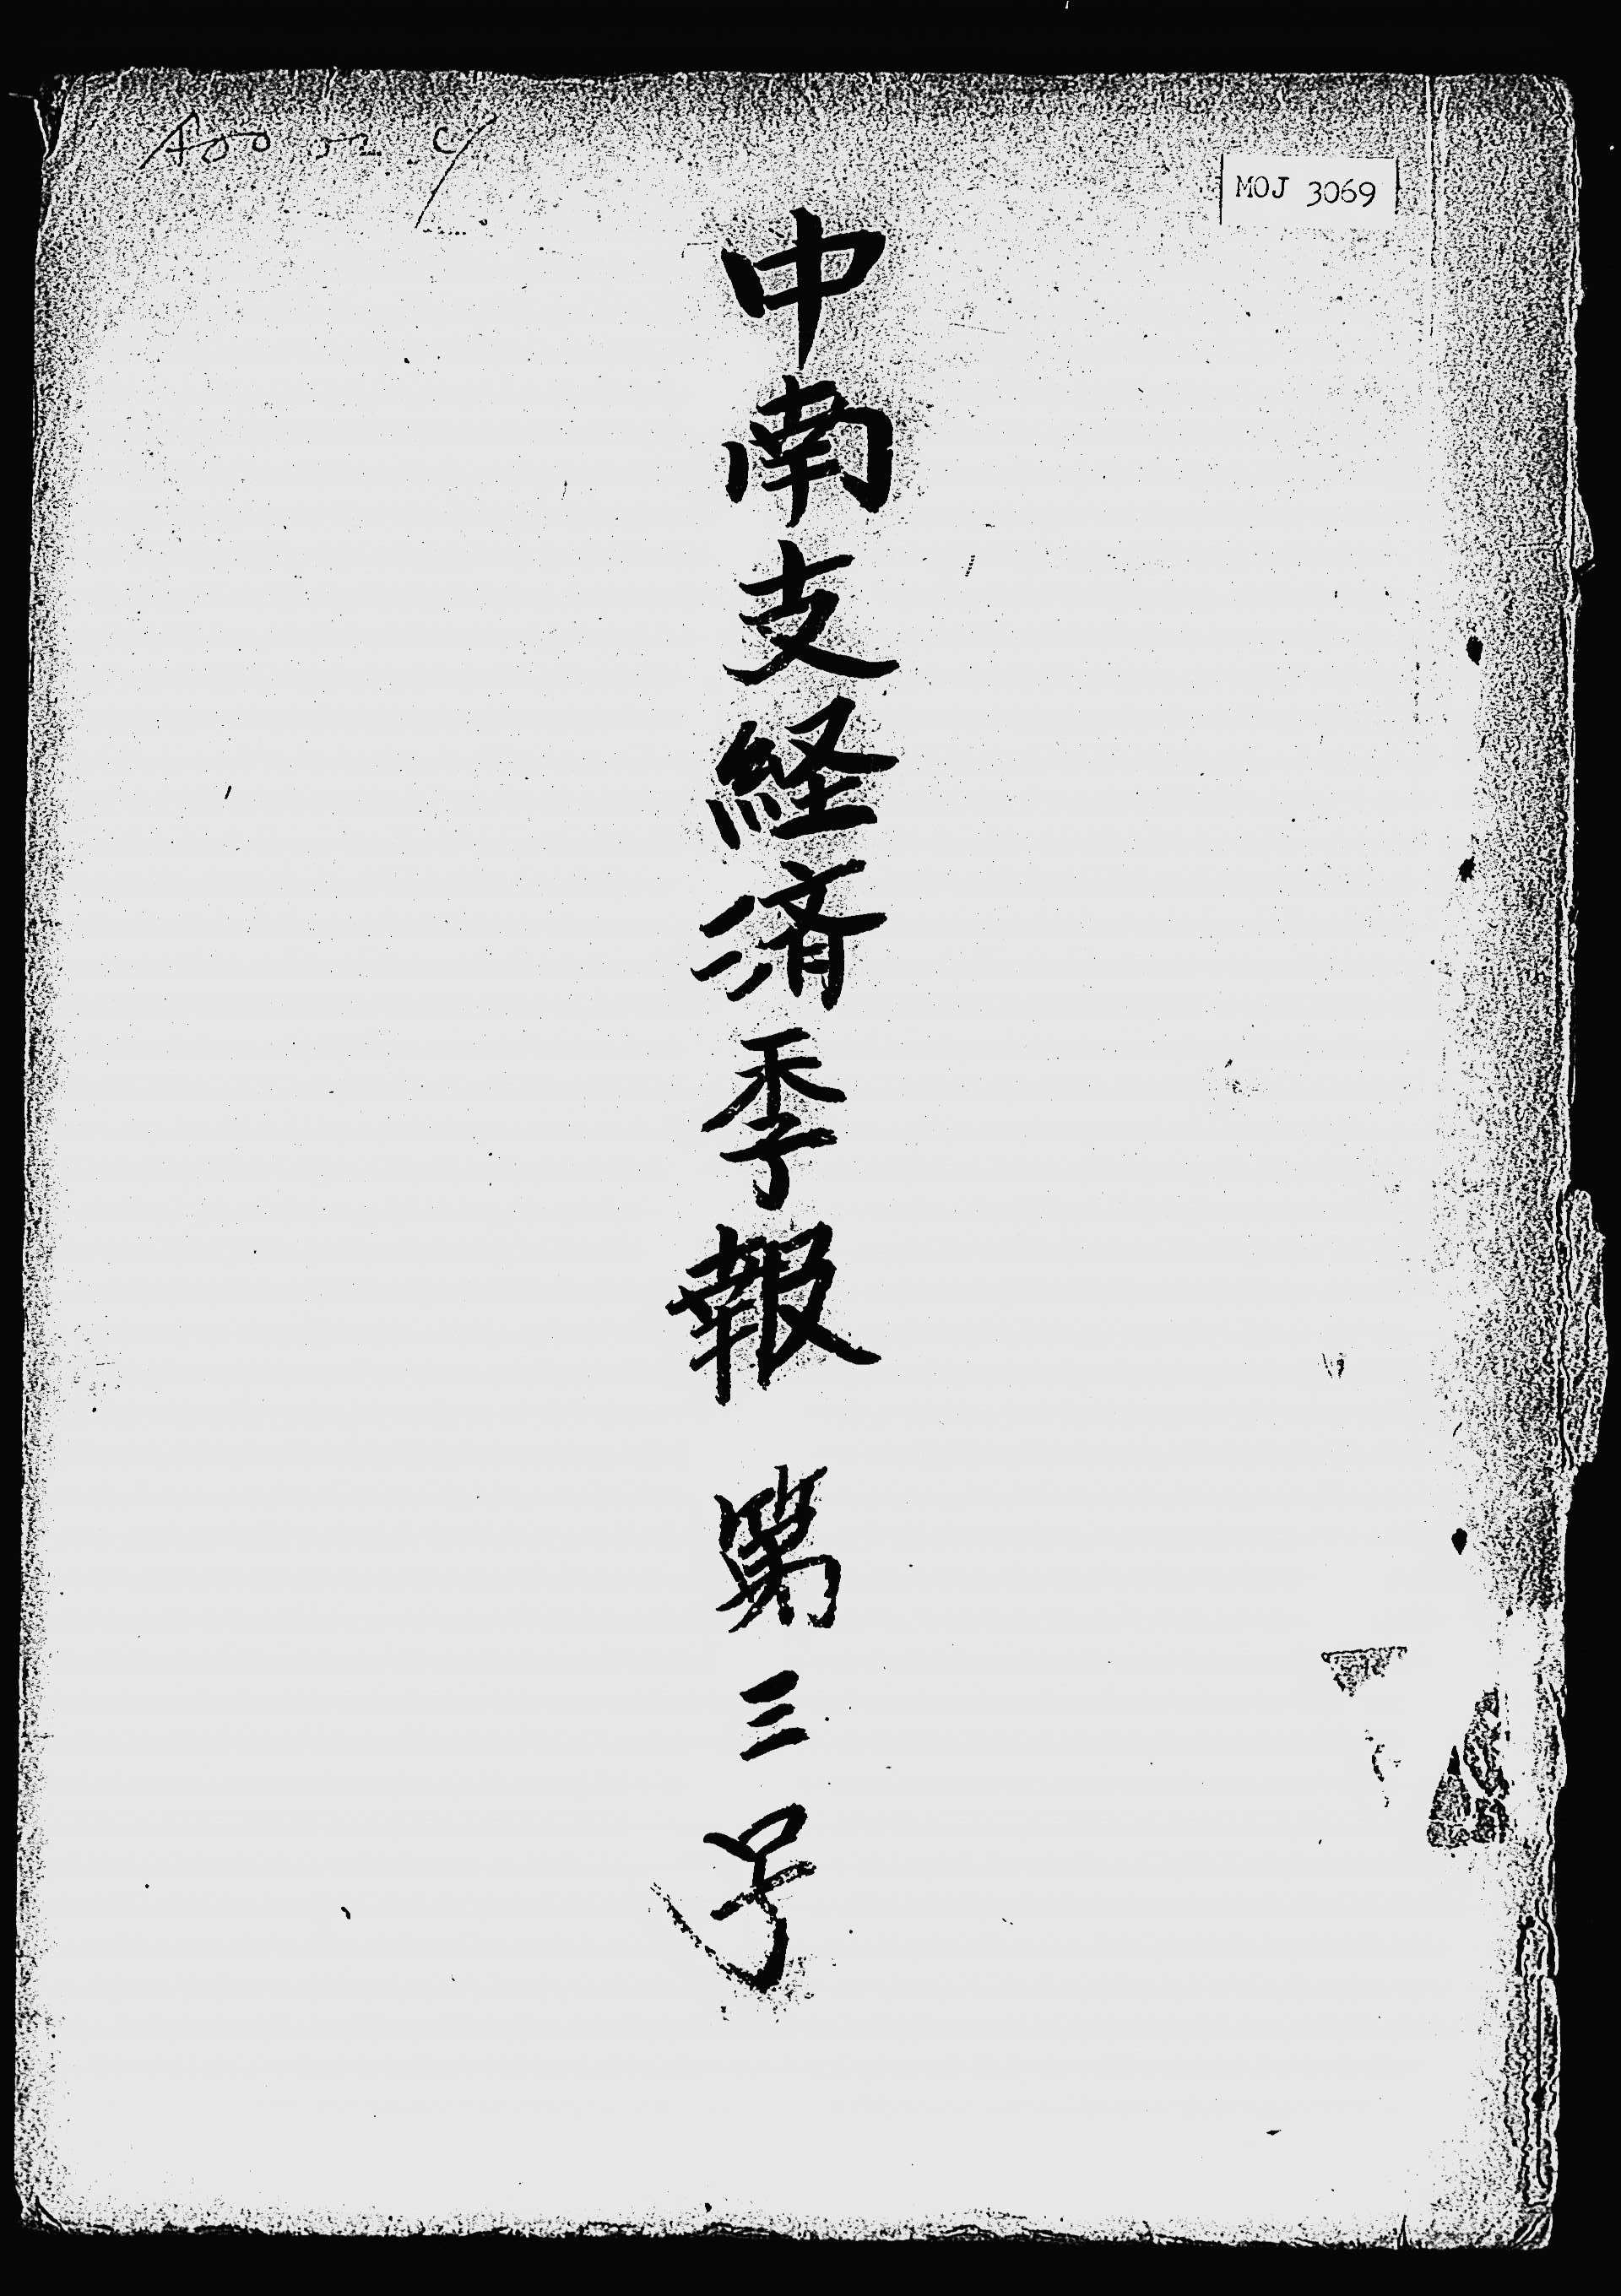 MOJ 3069
中南支経済季報 第三号